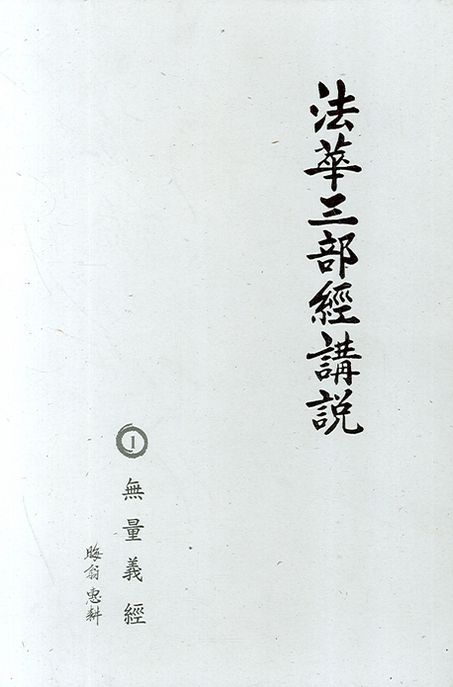 法華三部經講説
1
無量義經
晦翁 惠耕